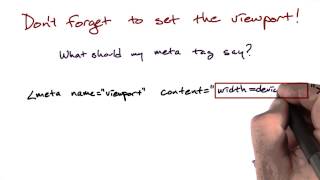 Don't forget to set the viewport!
What should my meta tag say?
<meta name="viewport" content="width=devic